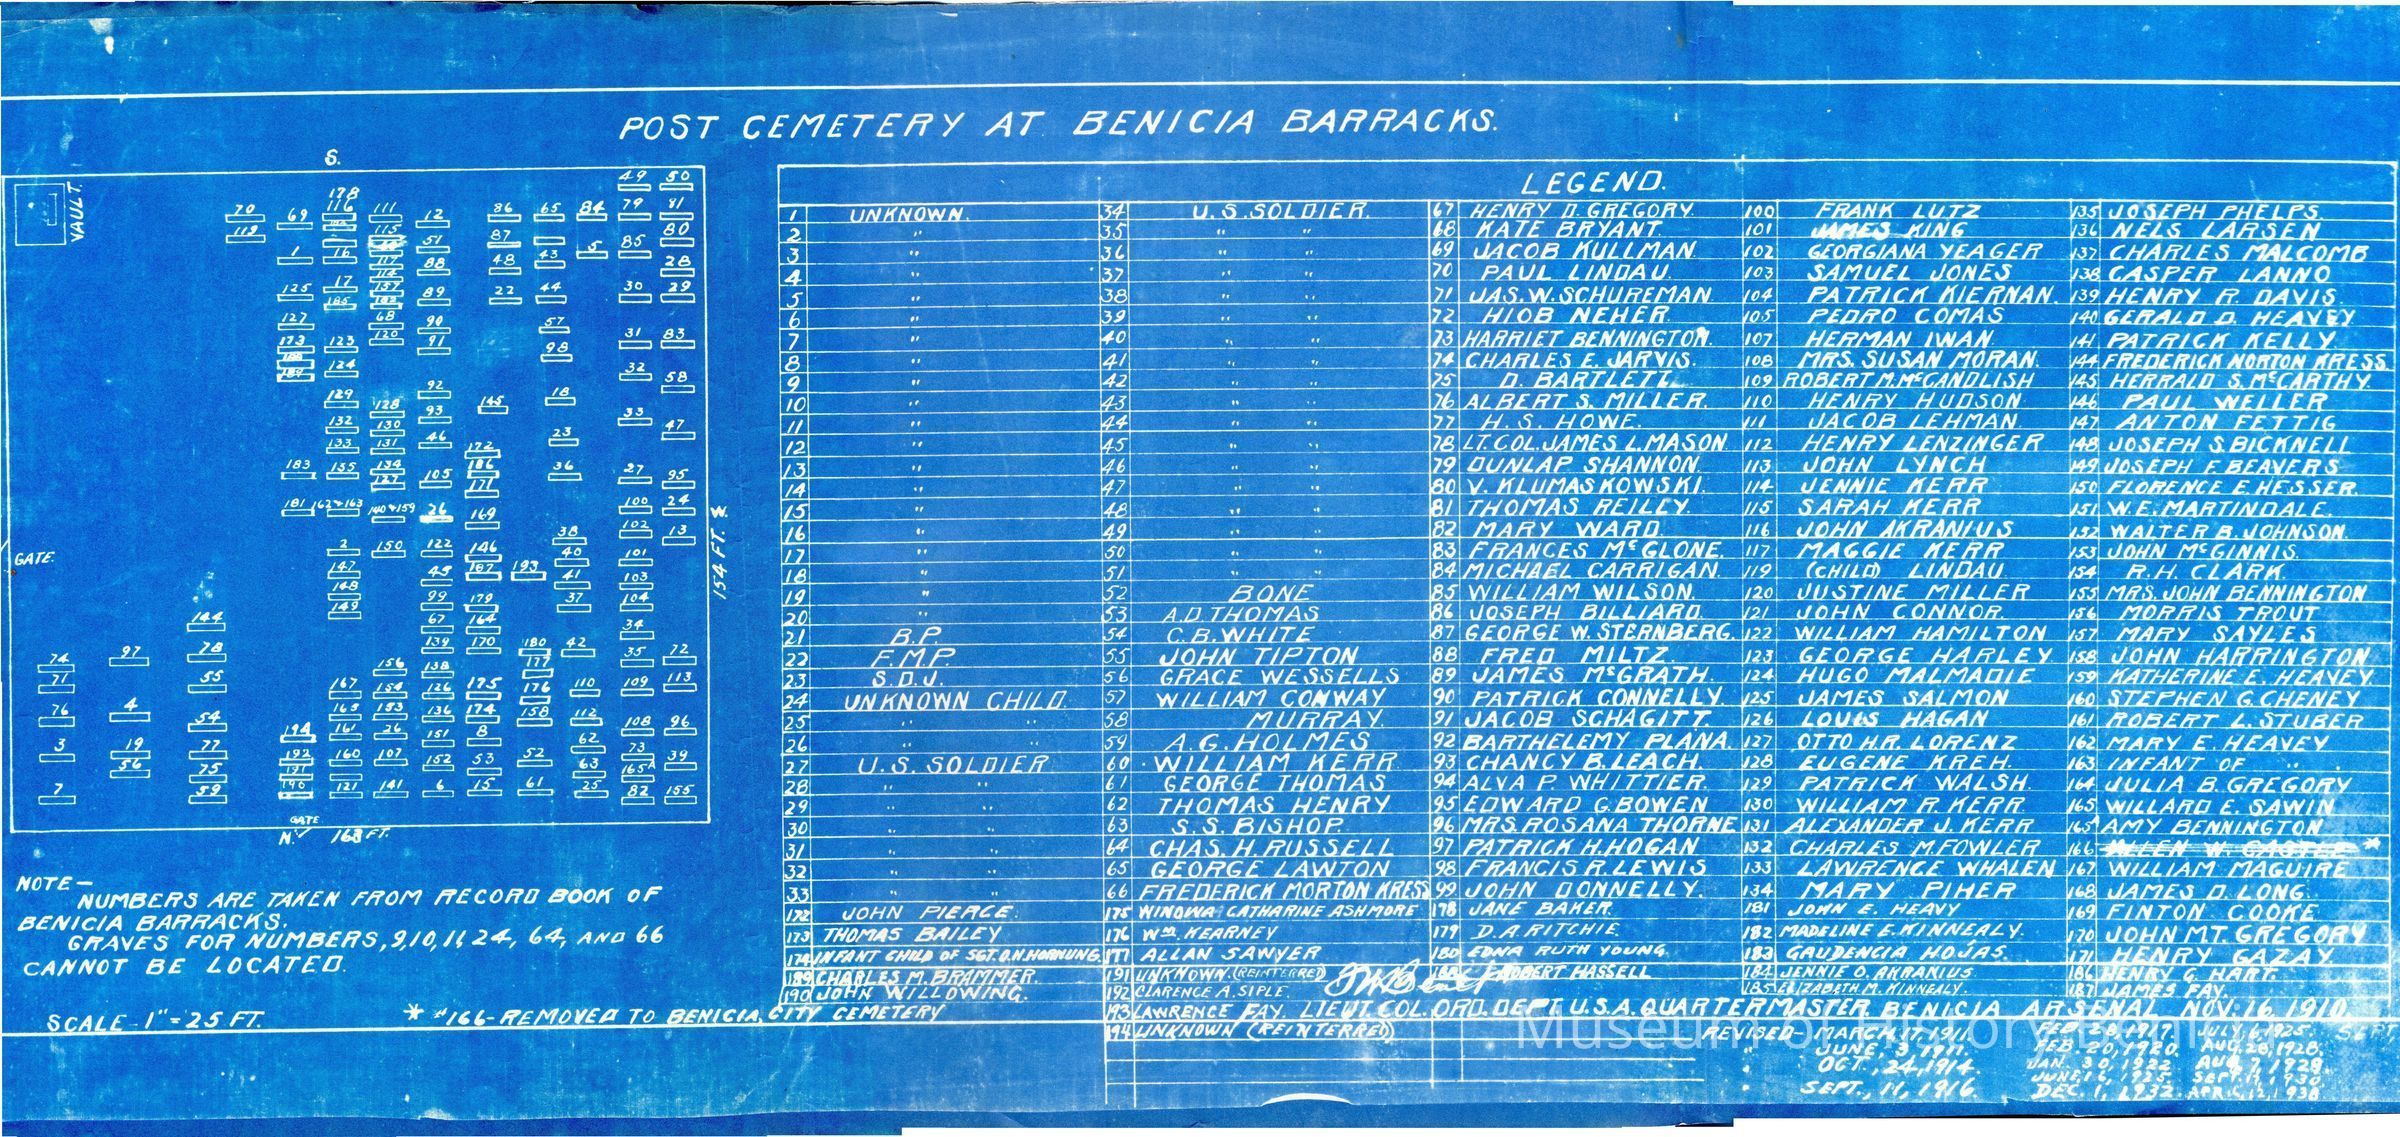 POST CEMETERY AT BENICIA BARRACKS.
S.
VAULT.
GATE.
154 FT. W.
GATE
N. 163 FT.
NOTE—
NUMBERS ARE TAKEN FROM RECORD BOOK OF
BENICIA BARRACKS.
GRAVES FOR NUMBERS, 9, 10, 11, 24, 64, AND 66
CANNOT BE LOCATED.
SCALE - 1" = 25 FT.
* #166 - REMOVED TO BENICIA, CITY CEMETERY
LEGEND.
1 UNKNOWN.
2 "
3 "
4 "
5 "
6 "
7 "
8 "
9 "
10 "
11 "
12 "
13 "
14 "
15 "
16 "
17 "
18 "
19 "
20 "
21 B.P.
22 F.M.P.
23 S.D.J.
24 UNKNOWN CHILD.
25 " "
26 " "
27 U.S. SOLDIER
28 " "
29 " "
30 " "
31 " "
32 " "
33 " "
172 JOHN PIERCE.
173 THOMAS BAILEY
174 INFANT CHILD OF SGT. O.H. HORNUNG.
189 CHARLES M. BRAMMER.
190 JOHN WILLOWING.
34 U.S. SOLDIER.
35 " "
36 " "
37 " "
38 " "
39 " "
40 " "
41 " "
42 " "
43 " "
44 " "
45 " "
46 " "
47 " "
48 " "
49 " "
50 " "
51 " "
52 BONE
53 A.D. THOMAS
54 C.B. WHITE
55 JOHN TIPTON
56 GRACE WESSELLS
57 WILLIAM CONWAY
58 MURRAY.
59 A.G. HOLMES
60 WILLIAM KERR
61 GEORGE THOMAS
62 THOMAS HENRY
63 S.S. BISHOP.
64 CHAS. H. RUSSELL
65 GEORGE LAWTON
66 FREDERICK MORTON KRESS
175 WINOWA CATHARINE ASHMORE
176 WM. KEARNEY
177 ALLAN SAWYER
191 UNKNOWN. (REINTERRED)
192 CLARENCE A. SIPLE.
193 LAWRENCE FAY.
194 UNKNOWN (REINTERRED)
67 HENRY D. GREGORY.
68 KATE BRYANT.
69 JACOB KULLMAN.
70 PAUL LINDAU.
71 JAS. W. SCHUREMAN.
72 HIOB NEHER.
73 HARRIET BENNINGTON.
74 CHARLES E. JARVIS.
75 D. BARTLETT.
76 ALBERT S. MILLER.
77 H.S. HOWE.
78 LT. COL. JAMES L. MASON.
79 DUNLAP SHANNON.
80 V. KLUMASKOWSKI.
81 THOMAS REILLY.
82 MARY WARD.
83 FRANCES McGLONE.
84 MICHAEL CARRIGAN.
85 WILLIAM WILSON.
86 JOSEPH BILLIARD.
87 GEORGE W. STERNBERG.
88 FRED MILTZ.
89 JAMES McGRATH.
90 PATRICK CONNELLY.
91 JACOB SCHAGITT.
92 BARTHELEMY PLANA.
93 CHANCY B. LEACH.
94 ALVA P. WHITTIER.
95 EDWARD G. BOWEN
96 MRS. ROSANA THORNE
97 PATRICK H. HOGAN
98 FRANCIS R. LEWIS
99 JOHN DONNELLY.
178 JANE BAKER.
179 D.A. RITCHIE.
180 EDNA RUTH YOUNG.
188 ROBERT HASSELL
100 FRANK LUTZ
101 JAMES KING
102 GEORGIANA YEAGER
103 SAMUEL JONES
104 PATRICK KIERNAN.
105 PEDRO COMAS
107 HERMAN IWAN.
108 MRS. SUSAN MORAN.
109 ROBERT M. McCANDLISH
110 HENRY HUDSON
111 JACOB LEHMAN.
112 HENRY LENZINGER
113 JOHN LYNCH
114 JENNIE KERR
115 SARAH KERR
116 JOHN AKRANIUS
117 MAGGIE KERR
119 (CHILD) LINDAU
120 JUSTINE MILLER
121 JOHN CONNOR.
122 WILLIAM HAMILTON
123 GEORGE HARLEY
124 HUGO MALMADIE
125 JAMES SALMON
126 LOUIS HAGAN
127 OTTO H.R. LORENZ
128 EUGENE KREH.
129 PATRICK WALSH.
130 WILLIAM R. KERR
131 ALEXANDER J. KERR
132 CHARLES M. FOWLER
133 LAWRENCE WHALEN
134 MARY PIHER
181 JOHN E. HEAVY
182 MADELINE E. KINNEALY.
183 GAUDENCIA HOJAS.
184 JENNIE O. AKRANIUS
185 ELIZABETH M. KINNEALY.
135 JOSEPH PHELPS.
136 NELS LARSEN
137 CHARLES MALCOMB
138 CASPER LANNO
139 HENRY R. DAVIS.
140 GERALD D. HEAVEY
141 PATRICK KELLY.
144 FREDERICK NORTON KRESS
145 HERRALD S. McCARTHY.
146 PAUL WELLER
147 ANTON FETTIG
148 JOSEPH S. BICKNELL
149 JOSEPH F. BEAVERS
150 FLORENCE E. HESSER.
151 W.E. MARTINDALE.
152 WALTER B. JOHNSON.
153 JOHN McGINNIS.
154 R.H. CLARK.
155 MRS. JOHN BENNINGTON
156 MORRIS TROUT
157 MARY SAYLES
158 JOHN HARRINGTON
159 KATHERINE E. HEAVEY
160 STEPHEN G. CHENEY
161 ROBERT L. STUBER
162 MARY E. HEAVEY
163 INFANT OF " .
164 JULIA B. GREGORY
165 WILLARD E. SAWIN
165A AMY BENNINGTON
166 *
167 WILLIAM MAGUIRE
168 JAMES D. LONG.
169 FINTON COOKE
170 JOHN MT. GREGORY
171 HENRY GAZAY.
186 HENRY G. HART.
187 JAMES FAY.
LIEUT. COL. ORD. DEPT. U.S.A. QUARTERMASTER. BENICIA ARSENAL NOV. 16, 1910.
REVISED - MARCH 17, 1911.
" JUNE, 3, 1911.
" OCT., 24, 1914.
" SEPT., 11, 1916.
FEB. 28, 1917.
FEB. 20, 1920.
JAN. 30, 1922
DEC. 1, 1932.
JULY, 6, 1925.
AUG. 28, 1928.
AUG. 7, 1928.
APR. 12, 1938
Museum of History Benicia